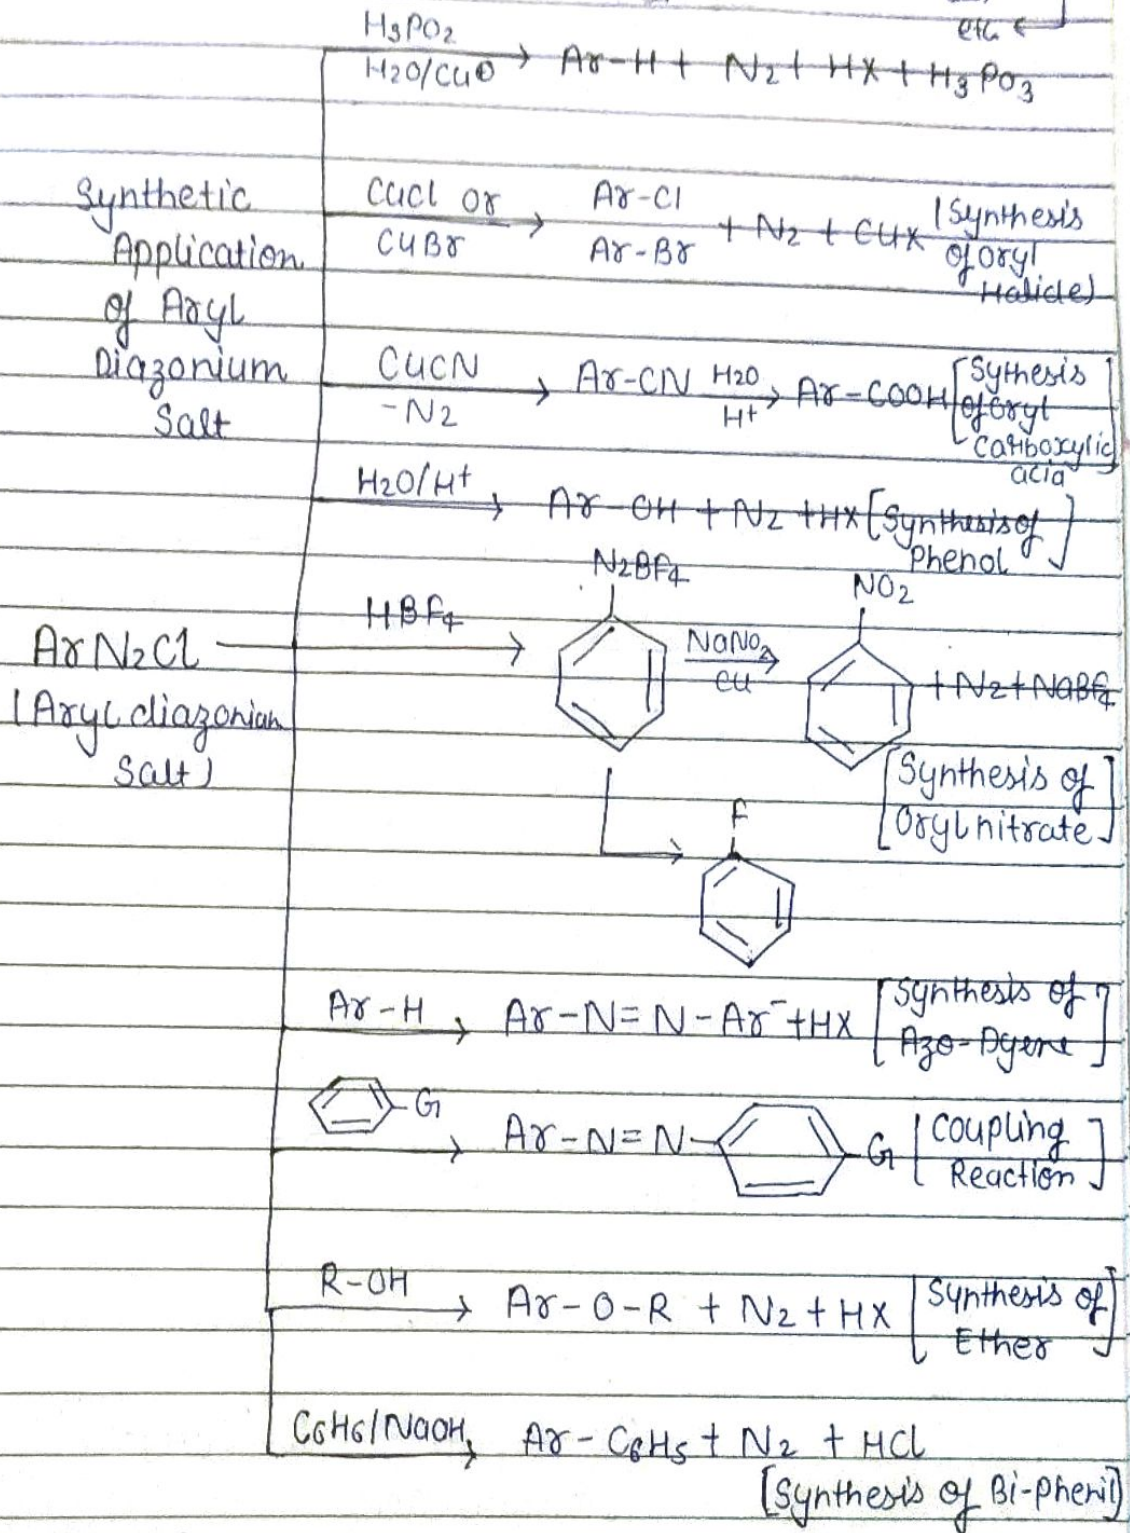 etc
H3PO2
H2O/Cu⊕ → Ar-H + N2 + HX + H3PO3
Synthetic
Application
of Aryl
Diazonium
Salt
CuCl or
CuBr → Ar-Cl
Ar-Br + N2 + CuX (Synthesis
of oryl
Halide)
CuCN
-N2 → Ar-CN H2O
H+ → Ar-COOH [Sythesis
of oryl
Carboxylic
acid
H2O/H+ → Ar-OH + N2 + HX [Synthesis of
Phenol]
ArN2Cl
(Aryl diazonium
Salt)
HBF4 →
N2BF4
NaNO2
Cu →
NO2
+ N2 + NaBF4
[Synthesis of
Oryl nitrate]
F
Ar-H → Ar-N=N-Ar- + HX [Synthesis of
Azo-Dyene]
-G → Ar-N=N- -G [Coupling
Reaction]
R-OH → Ar-O-R + N2 + HX [Synthesis of
Ether]
C6H6/NaOH → Ar-C6H5 + N2 + HCl
[Synthesis of Bi-phenil]